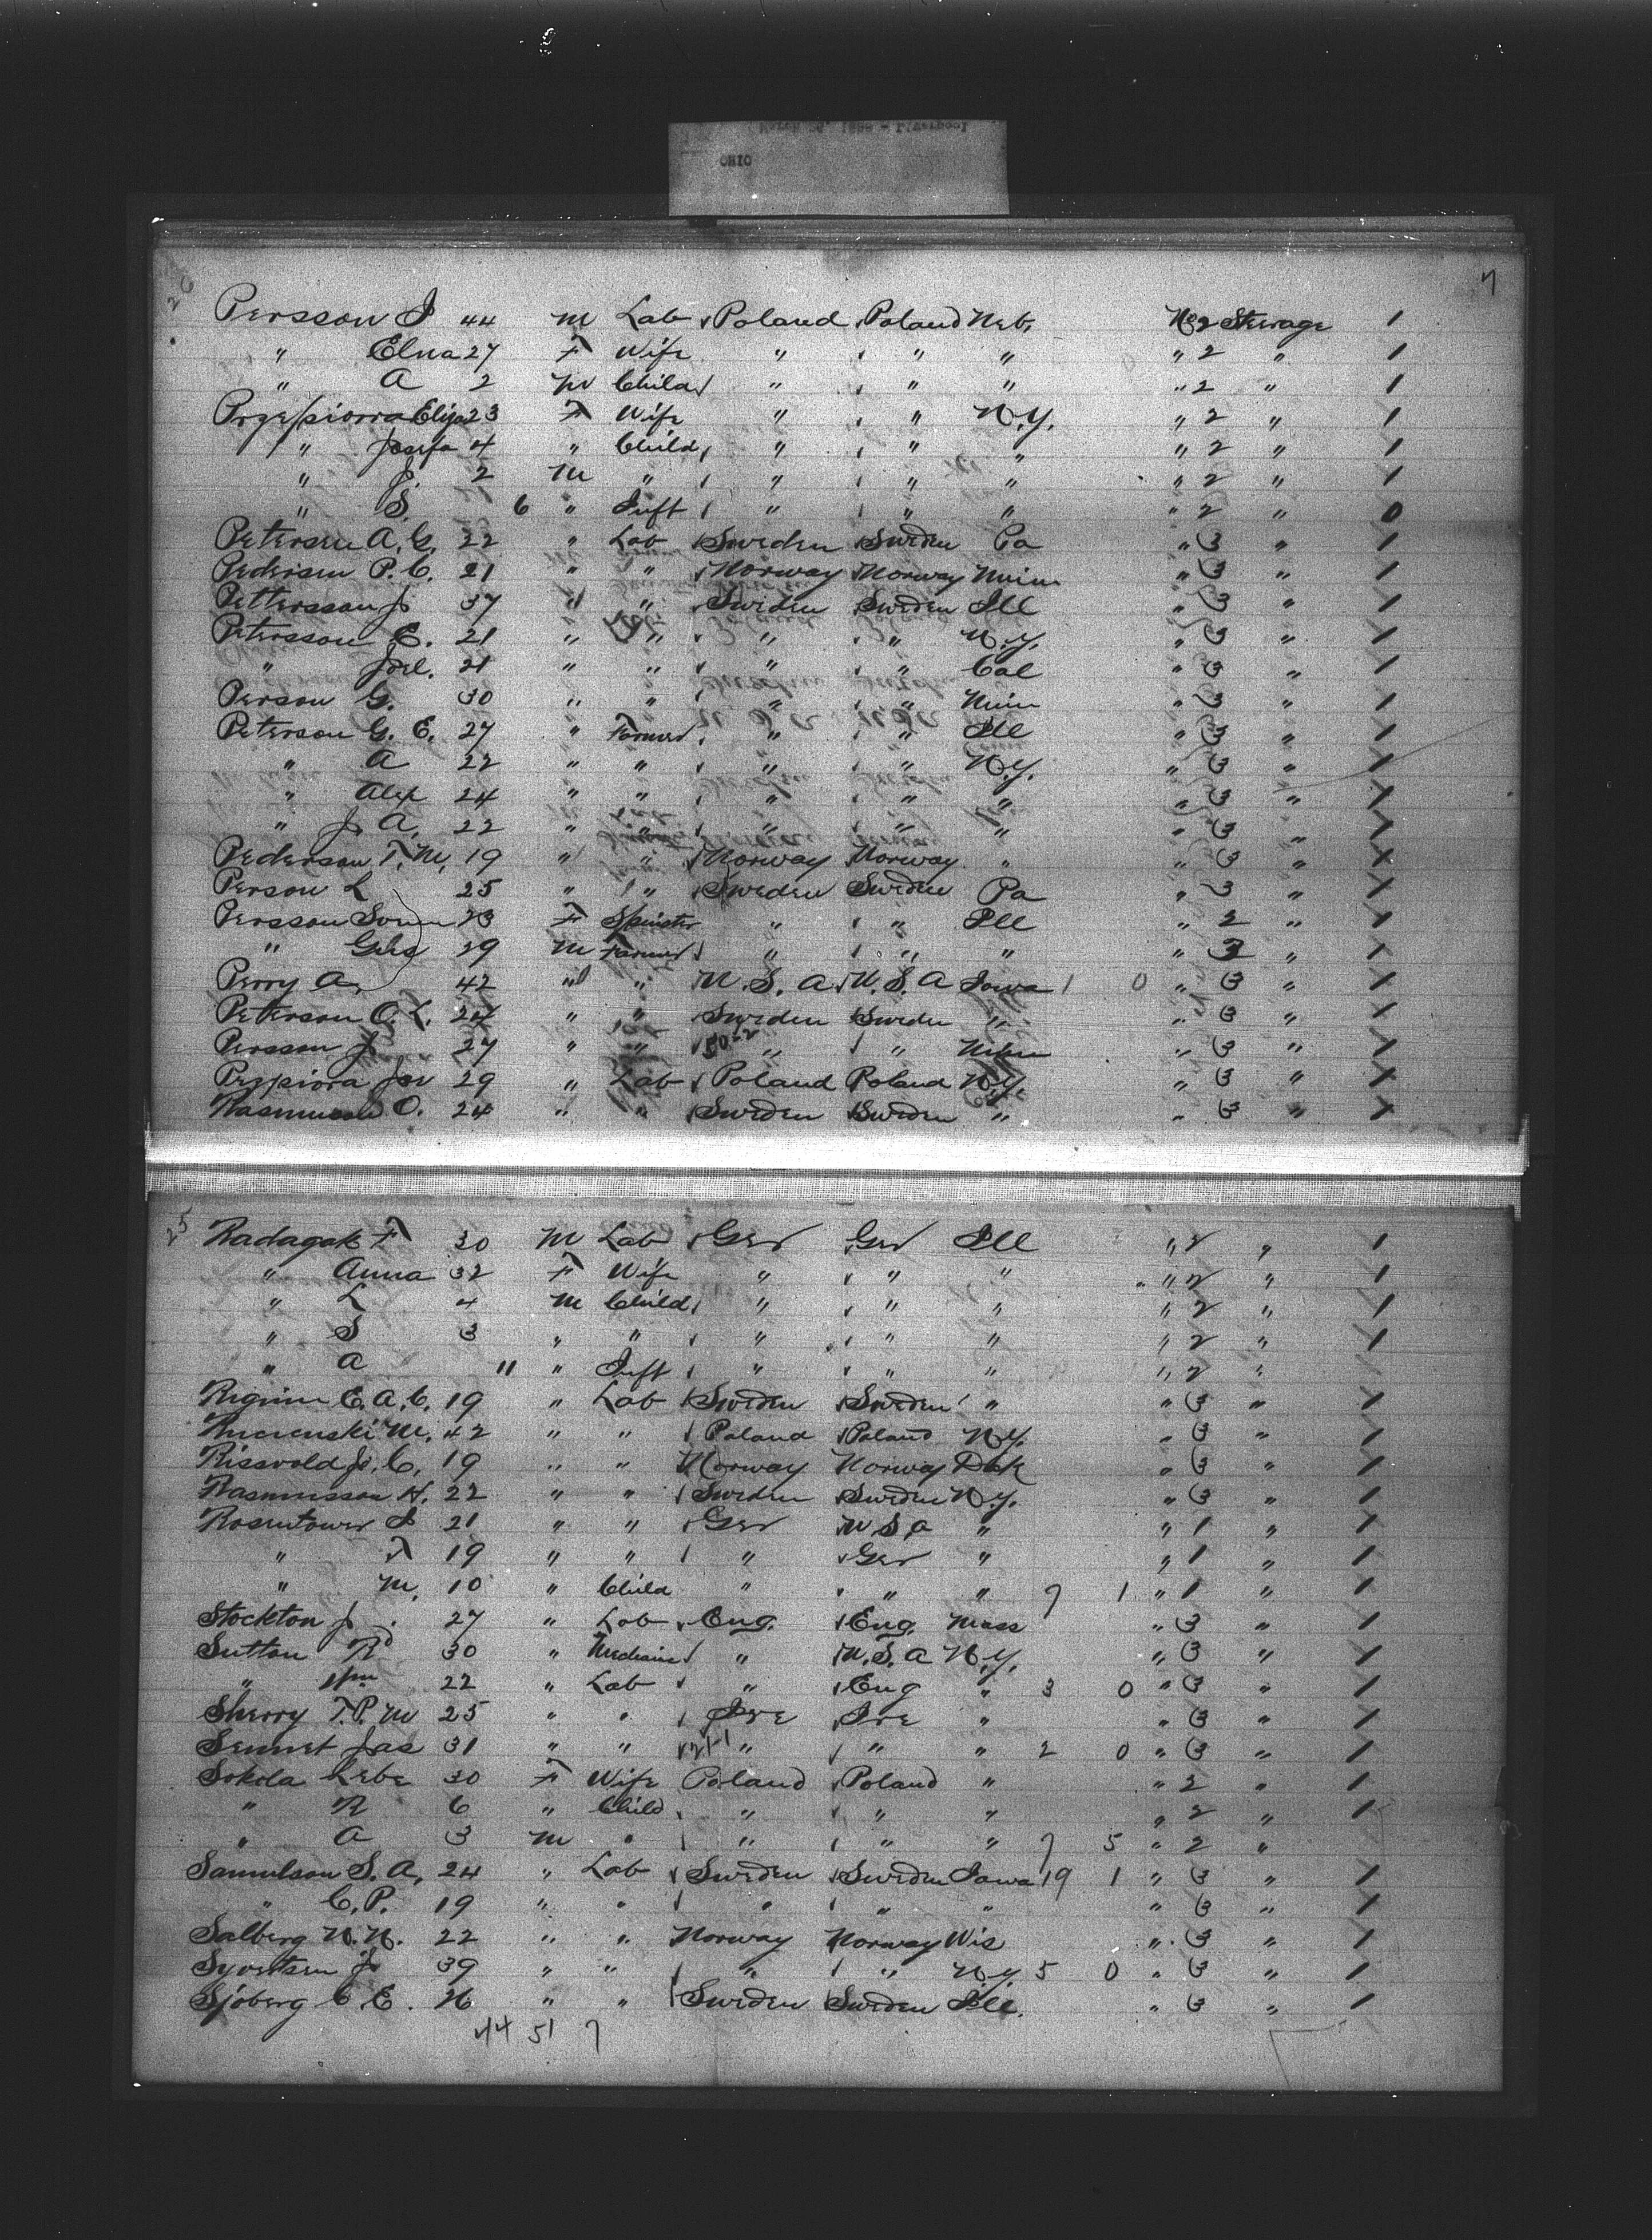 March 26, 1888 - Liverpool
OHIO
26 7
Persson J 44 M Lab Poland Poland Neb. No 2 Steerage 1
" Elna 27 F Wife " " " " 2 " 1
" A 2 M Child " " " " 2 " 1
Przepiorra Eliza 23 F Wife " " N.Y. " 2 " 1
" Josefa 4 " Child " " " " 2 " 1
" J. 2 M " " " " " 2 " 1
" S. 6 " Inft " " " " 2 " 0
Petersen A. G. 22 " Lab Sweden Sweden Pa " 3 " 1
Pedersen P. C. 21 " " Norway Norway Minn " 3 " 1
Pettersson J 37 " " Sweden Sweden Ill " 3 " 1
Petersson E. 21 " " " " N.Y. " 3 " 1
" Joel. 21 " " " " Cal " 3 " 1
Person G. 30 " " " " Minn " 3 " 1
Peterson G. E. 27 " Farmer " " Ill " 3 " 1
" A 22 " " " " N.Y. " 3 " 1
" Alex 24 " " " " " " 3 " 1
" J. A. 22 " " " " " " 3 " 1
Pederson T. M. 19 " " Norway Norway " " 3 " 1
Person L 25 " " Sweden Sweden Pa " 3 " 1
Persson 23 F Spinster " " Ill " 2 " 1
" 29 M Farmer " " " " 3 " 1
Perry A. 42 " " U.S.A U.S.A Iowa 1 0 " 3 " 1
Peterson O. L. 24 " " Sweden Sweden " " 3 " 1
Persson J 27 " " " " " 3 " 1
Przpiora 29 " Lab Poland Poland N.Y. " 3 " 1
Rasmusson O. 24 " " Sweden Sweden " " 3 " 1
25
Radagak F 30 M Lab Ger Ger Ill " 2 " 1
" Anna 32 F Wife " " " " 2 " 1
" L 4 M Child " " " " 2 " 1
" S 3 " " " " " " 2 " 1
" A 11 " Inft " " " " 2 "
E. A. C. 19 " Lab Sweden Sweden " " 3 " 1
M. 42 " " Poland Poland N.Y. " 3 " 1
Rissvold J. C. 19 " " Norway Norway Dak " 3 " 1
Rasmusson H. 22 " " Sweden Sweden N.Y. " 3 " 1
Rosentower I 21 " " Ger U S A " " 1 " 1
" F 19 " " " Ger " " 1 " 1
" M. 10 " Child " " " 7 1 " 1 " 1
Stockton J. 27 " Lab Eng. Eng. Mass " 3 " 1
Sutton Rd 30 " " U.S.A N.Y. " 3 " 1
" Wm 22 " Lab " Eng " 3 0 " 3 " 1
Sherry T. P. M 25 " " Ire Ire " " 3 " 1
Sennet Jas 31 " " " " " 2 0 " 3 " 1
Sokola Lebe 30 F Wife Poland Poland " " 2 " 1
" R 6 " Child " " " " 2 " 1
" A 3 M " " " " 7 5 " 2 "
Samulson S. A. 24 " Lab Sweden Sweden Iowa 19 1 " 3 " 1
" C. P. 19 " " " " " " 3 " 1
Salberg N. N. 22 " " Norway Norway Wis " 3 " 1
Syvertsen J 39 " " " " N.Y. 5 0 " 3 " 1
Sjoberg C. E. 26 " " Sweden Sweden Ill. " 3 " 1
44 51 7